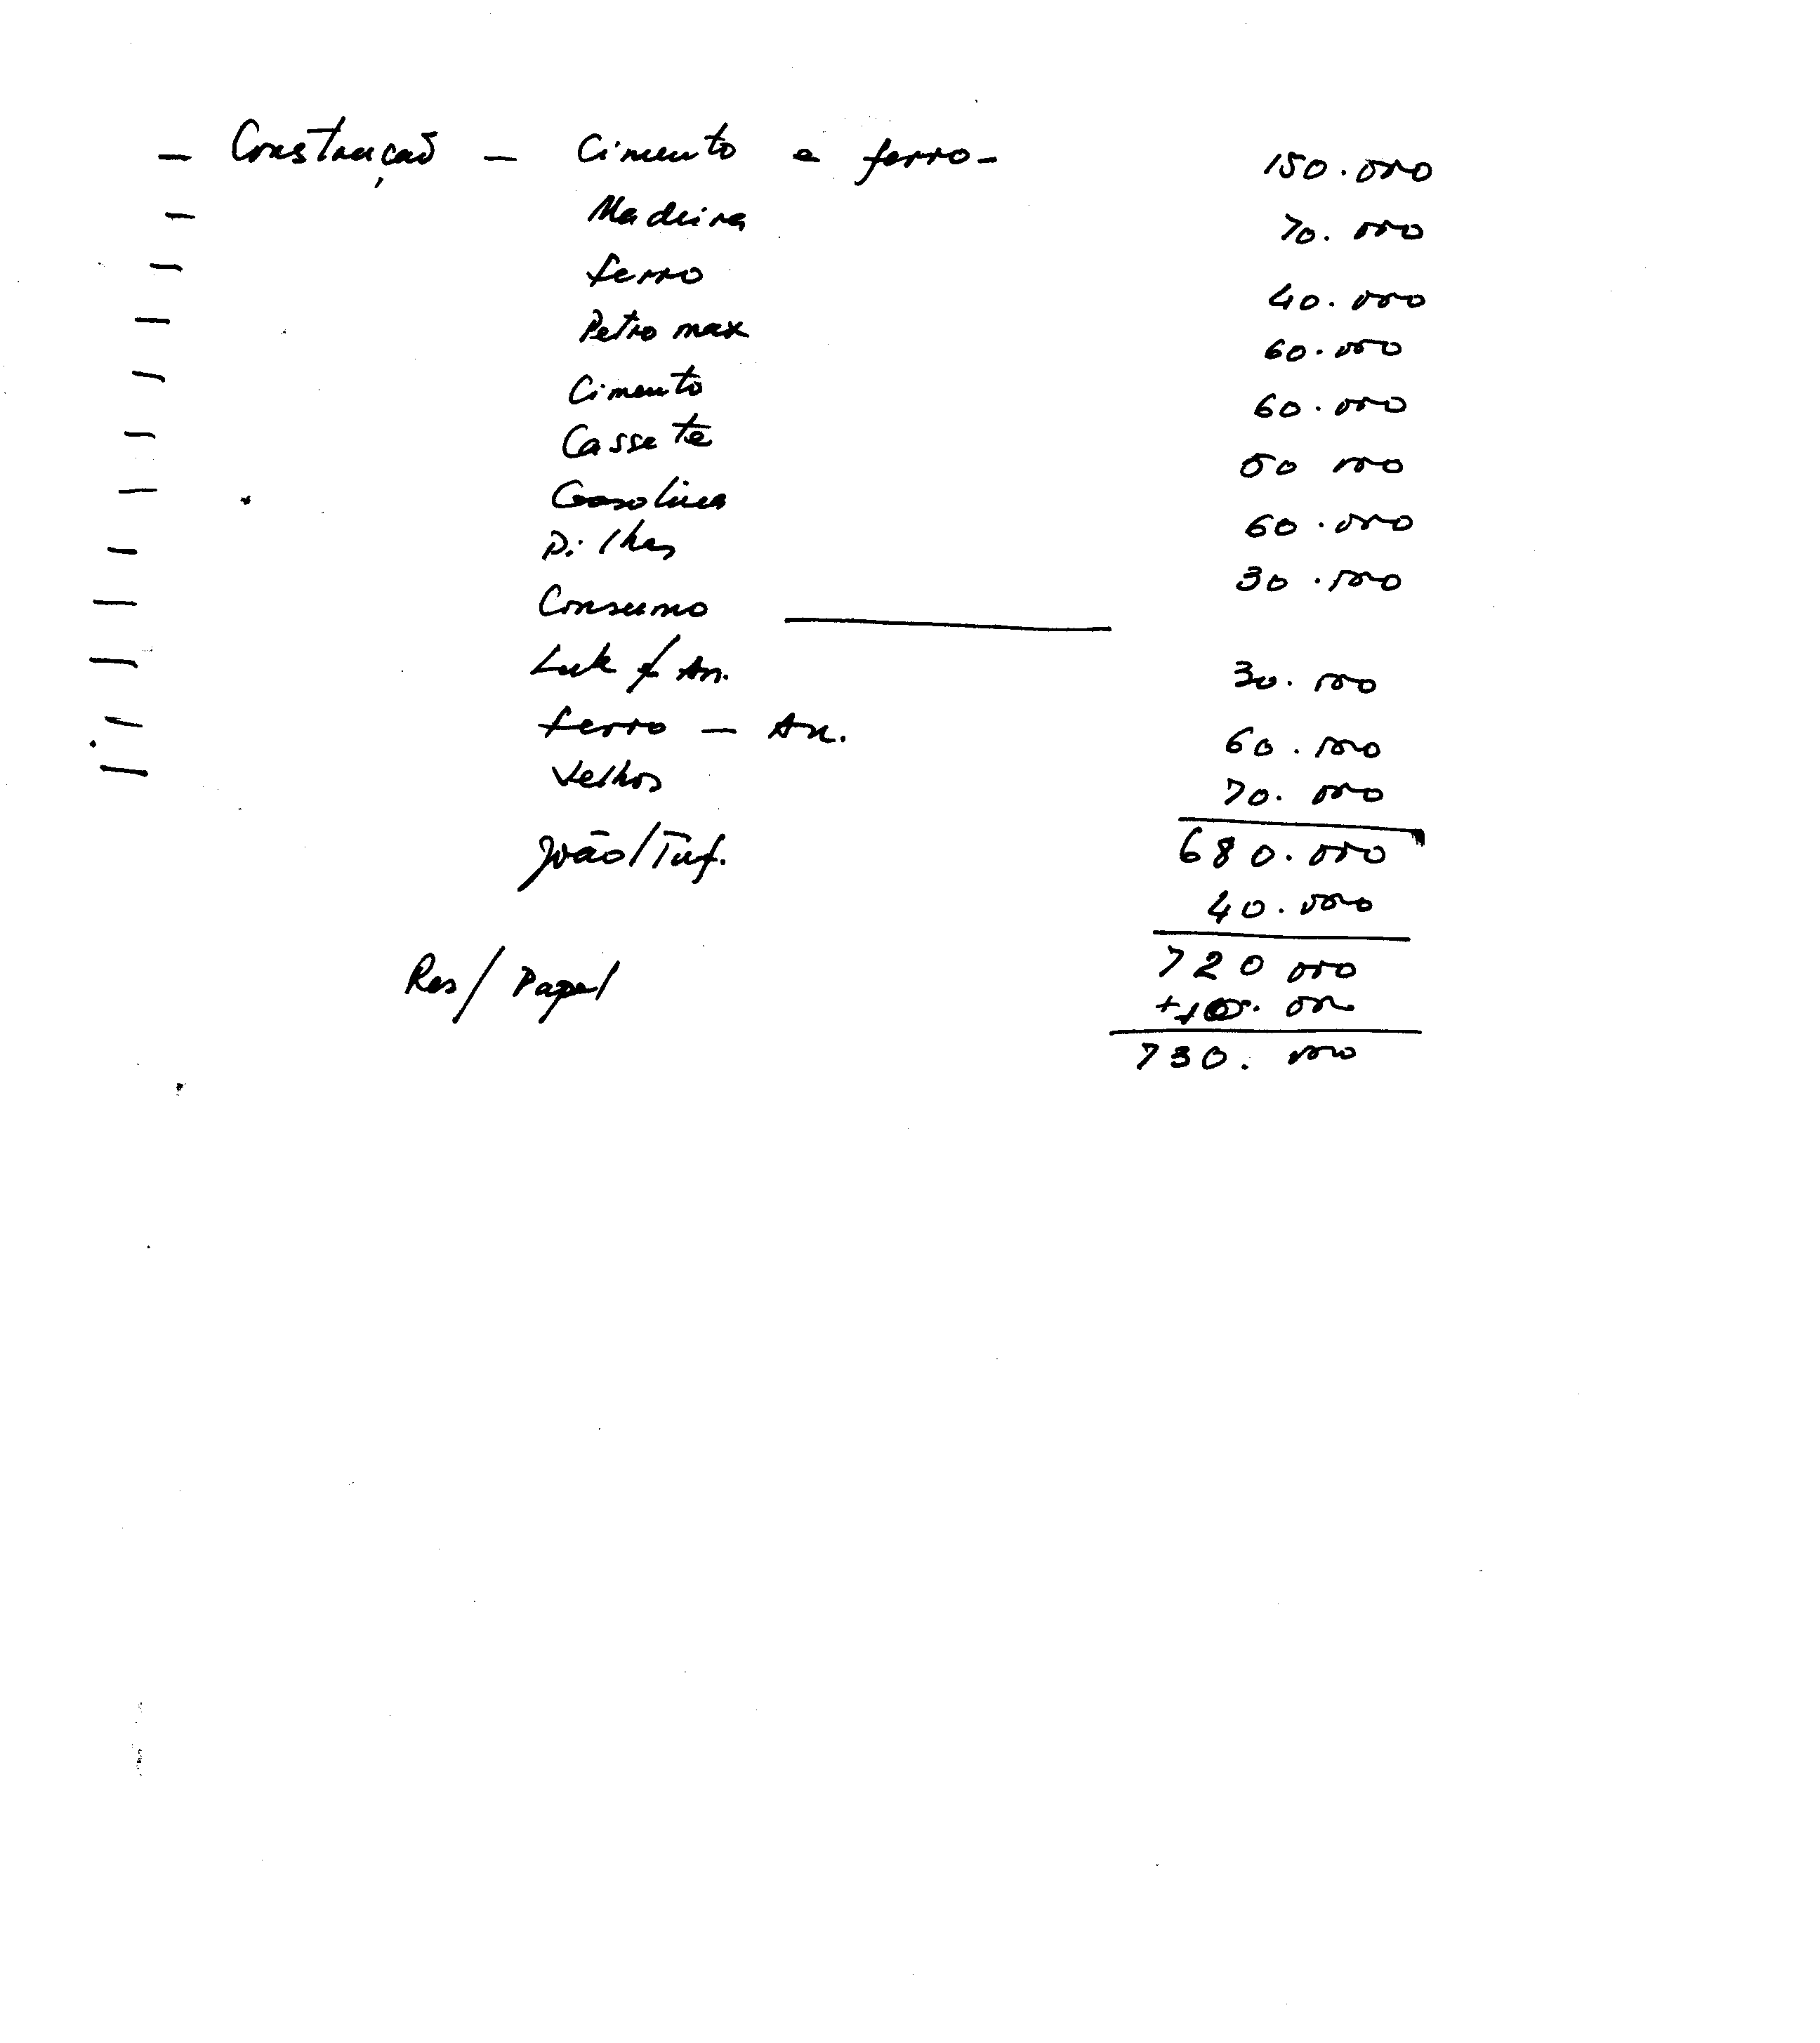 - Construção - Cimento e ferro - 150.000
- Madeira 70.000
- ferro 40.000
- Petromax 60.000
- Cimento 60.000
- Cassete 50 000
- Gasolina 60.000
- Pilhas 30.000
- Consumo ————
- Luk / An. 30.000
- ferro - An. 60.000
- Velhos 70.000
680.000
João/Tuf. 40.000
720 000
Res/Papel +10.000
730.000